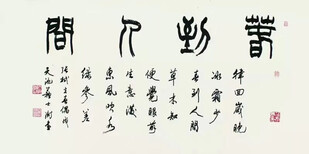 春到人間
律回歲晚
冰霜少
春到人间
草木知
便覺眼前
生意滿
東風吹水
綠參差
張栻立春偶成